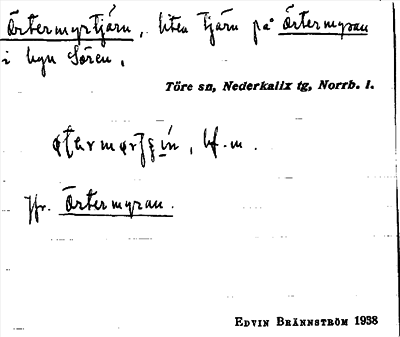 Örtermyrtjärn, liten tjärn på Örtermyran
i byn Sören.
Töre sn, Nederkalix tg, Norrb. l.
bf. m.
Jfr. Örtermyran.
EDVIN BRÄNNSTRÖM 1938